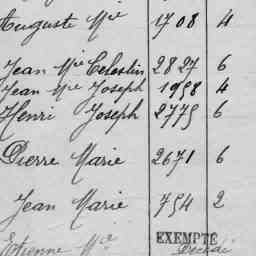 Auguste Mie 1708 4
Jean Mie Celestin 2827 6
Jean Mie Joseph 1958 4
Henri Joseph 2775 6
Pierre Marie 2671 6
Jean Marie 754 2
Etienne Mie EXEMPTÉ
Décédé